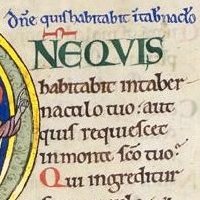 dñe quis habitabit ĩ tab̃naclo
NE QVIS
habitabit intaber
naculo tuo: aut
quis requiescet
inmonte sc̃o tuo:
Qui ingreditur